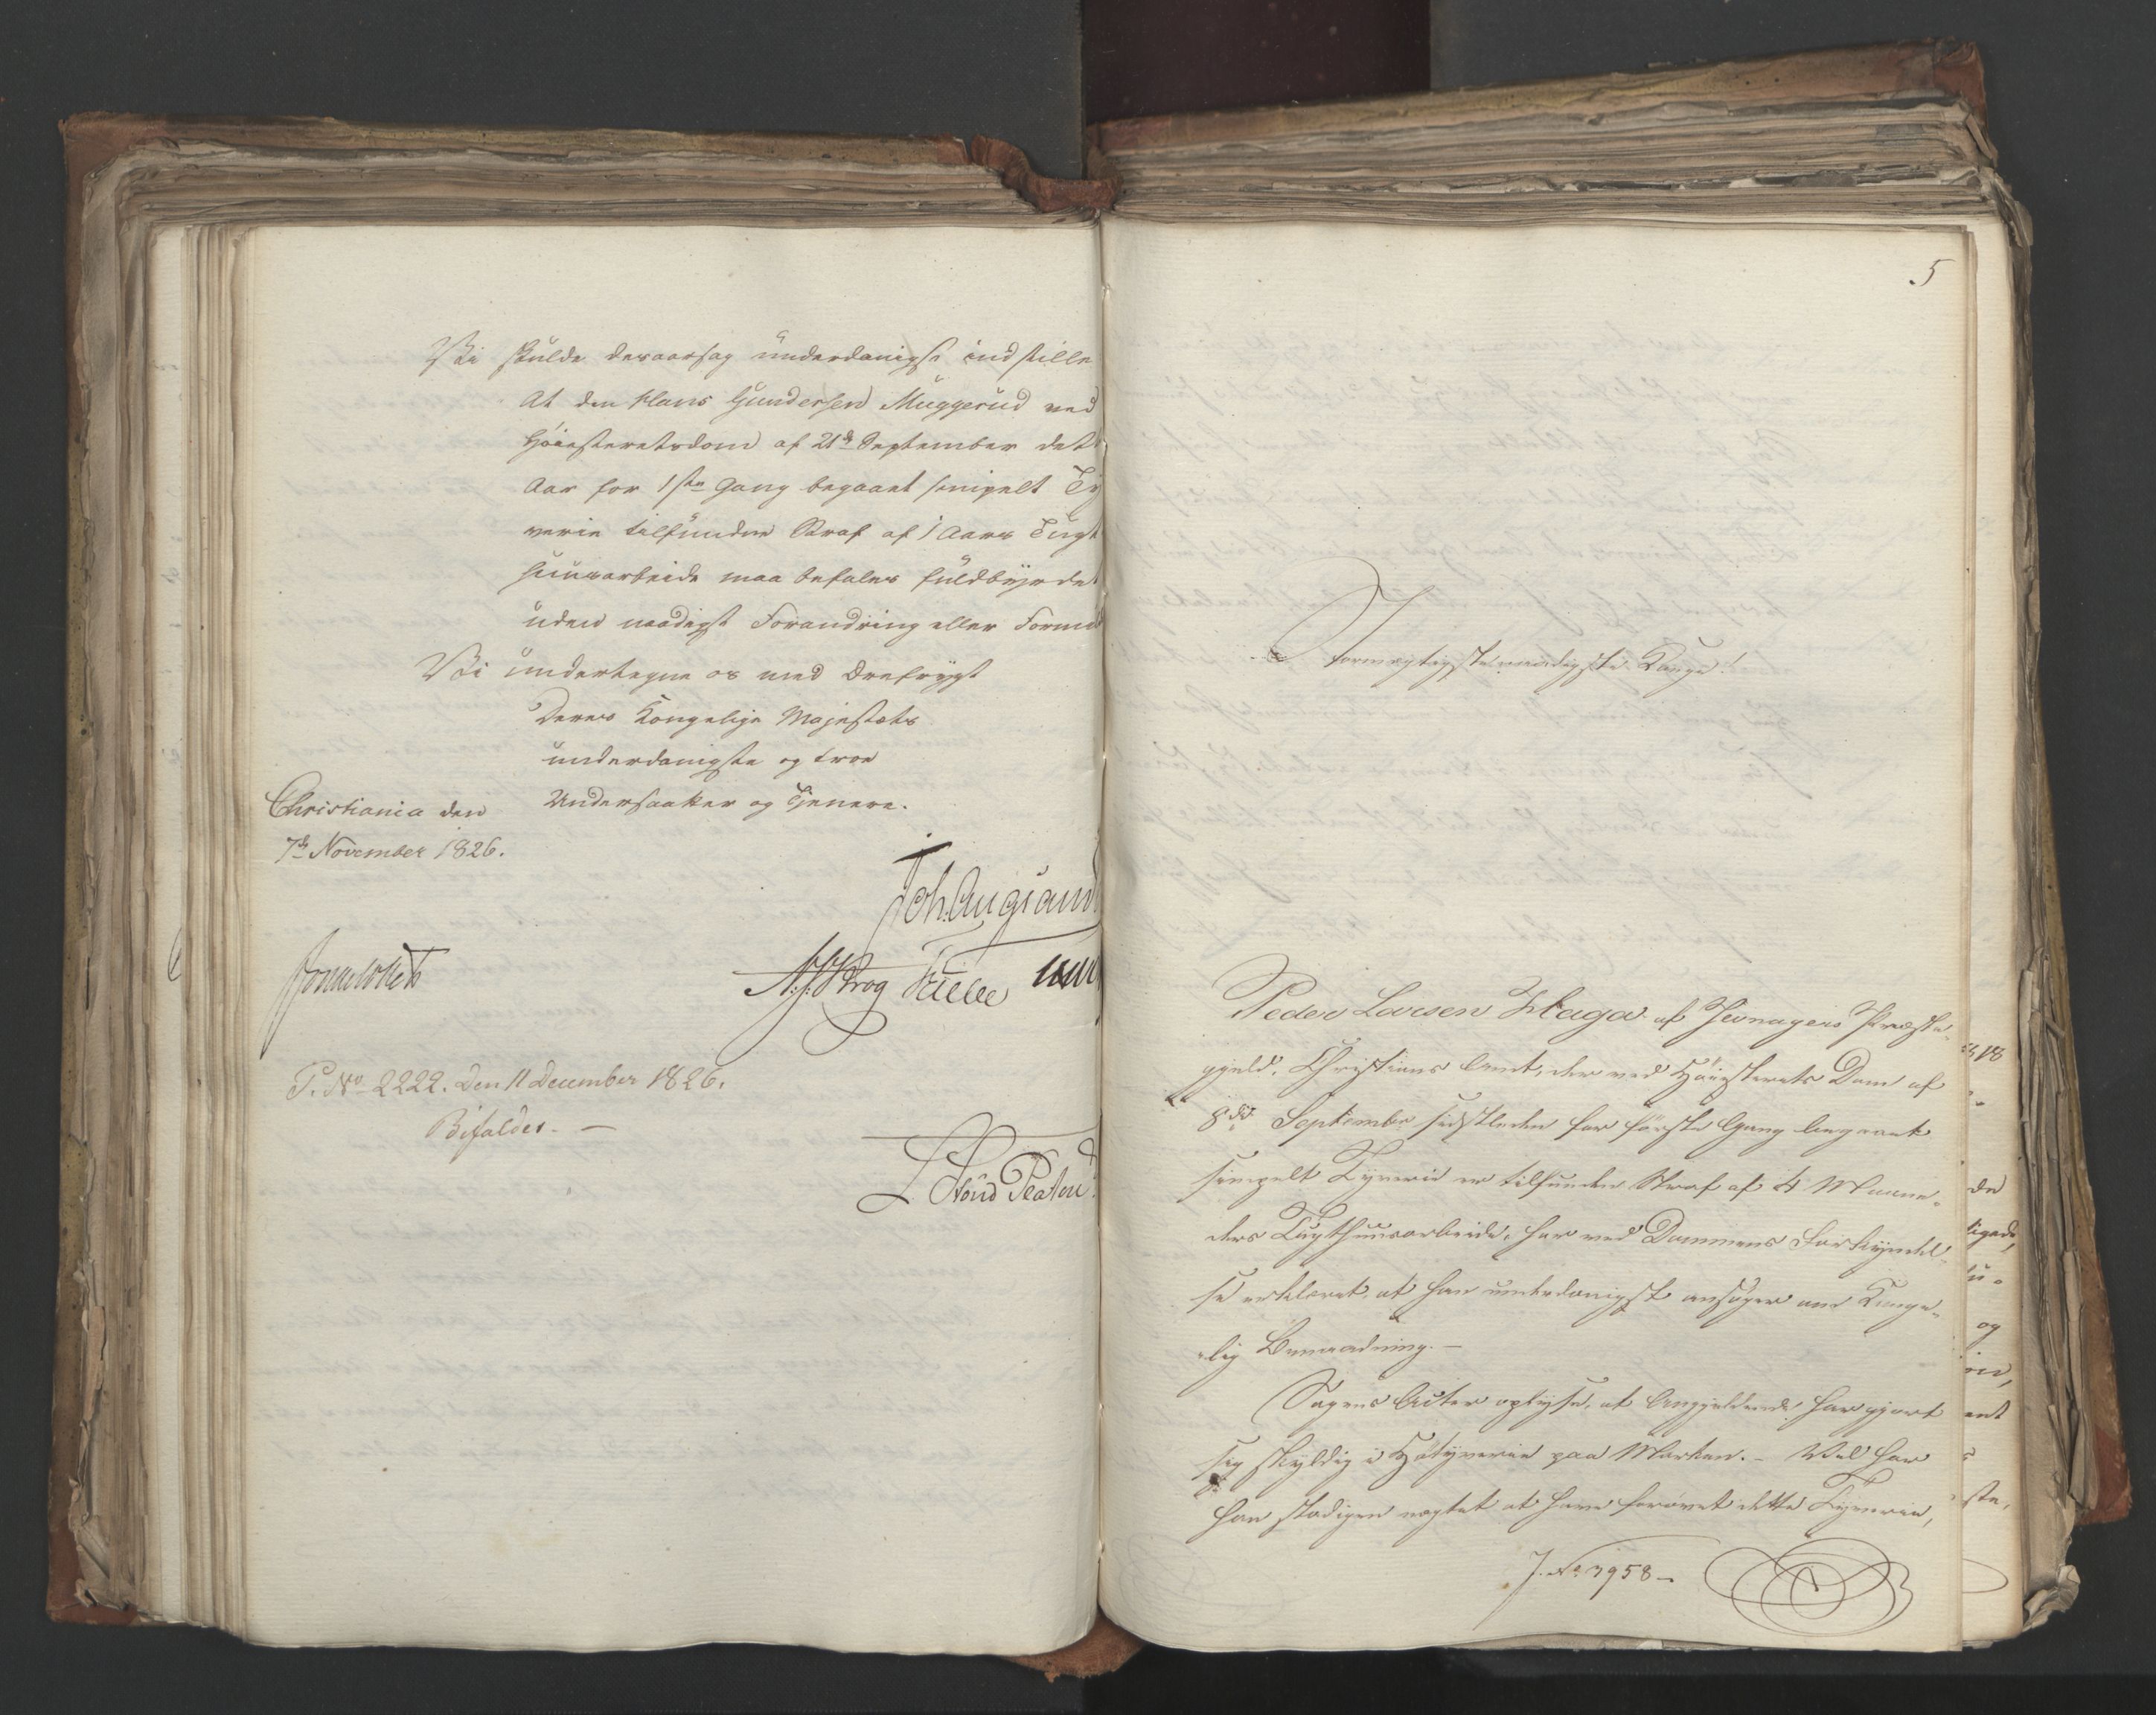 Vi skulde desaarsag underdanigst indstille
At den Hans Gundersen Muggerud ved
Høiesteretsdom af 21de September dette
Aar for 1ste Gang begaaet simpelt Ty
verie tilfundne Straf af 1 Aars Tugt
huusarbeide maa befales fuldbyrdet
uden naadigst Forandring eller Formil
Vi undertegne os med Ærefrygt
Deres Kongelige Majestæts
underdanigste og troe
Undersaatter og Tjenere.
Christiania den
7de November 1826.
Joh. Aug Sand
A.J. Krog
P. No 2222. Den 11 December 1826.
Bifaldes. —
5
Stormægtigste naadigste Konge!
Peder Larsen Haga af Jevnagers Præste-
gjeld, Christians Amt, der ved Høiesterets Dom af
8de September sidstleden for første Gang begaaet
simpelt Tyverie er tilfunden Straf af 4 Maane-
ders Tugthuusarbeide, har ved Dommens Forkyndel-
se erklæret, at han underdanigst ansøger om Konge-
lig Benaadning. —
Sagens Acter oplyse, at Angjeldende har gjort
sig skyldig i Høtyverie paa Marken. - Vel har
han stadigen nægtet at have forøvet dette Tyverie,
J. No 3958 —